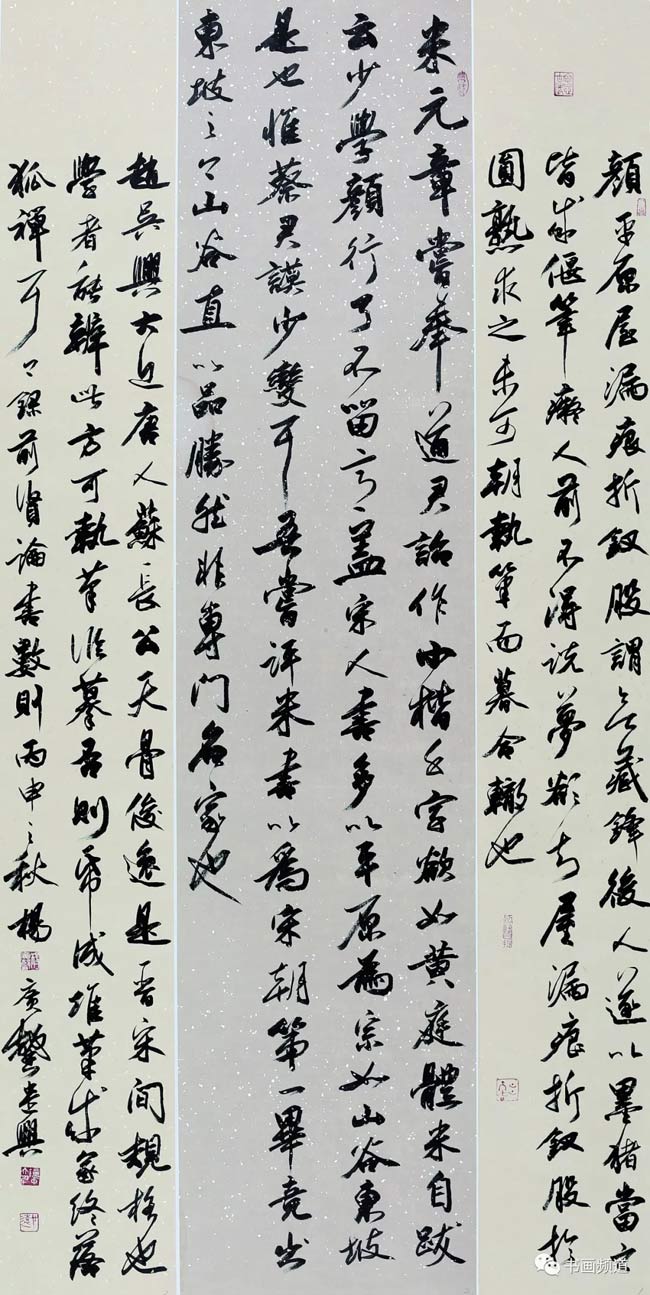 顏平原屋漏痕折釵股謂欲藏鋒後人遂以墨豬當之
皆成偃筆癡人前不得說夢欲知屋漏痕折釵股於
圓熟求之未可朝執筆而暮合轍也
米元章嘗奉道君詔作小楷千字欲如黃庭體米自跋
云少學顏行了不留意蓋宋人書多以平原為宗如山谷東坡
是也惟蔡君謨少變耳吾嘗評米書以為宋朝第一畢竟出
東坡之上山谷直以品勝然非專門名家也
趙吳興大近唐人蘇長公天骨俊逸是晉宋間規格也
學者能辨此方可執筆臨摹否則帋成堆筆成冢終落
狐禪耳上錄前賢論書數則丙申之秋楊廣馨遣興
书画频道